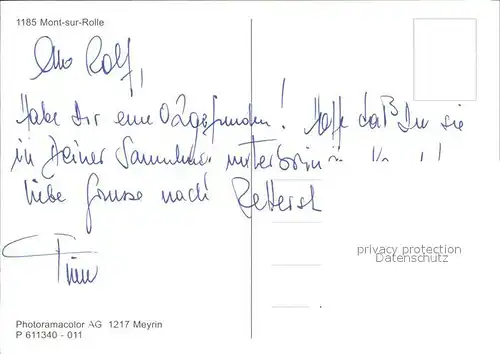 1185 Mont-sur-Rolle
Rolf,
Habe Dir eine gefunden! Hoffe daß Du sie
in Deiner Sammlung
liebe Grüsse nach
privacy protection
Datenschutz
Photoramacolor AG 1217 Meyrin
P 611340 - 011